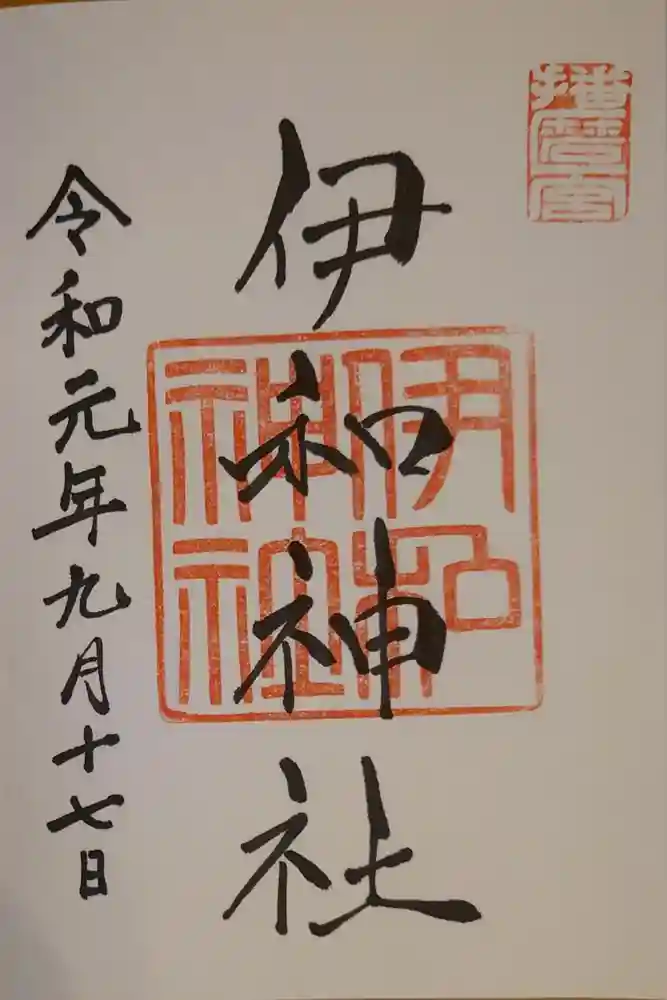 播磨一宮
伊和神社
伊和神社
令和元年九月十七日